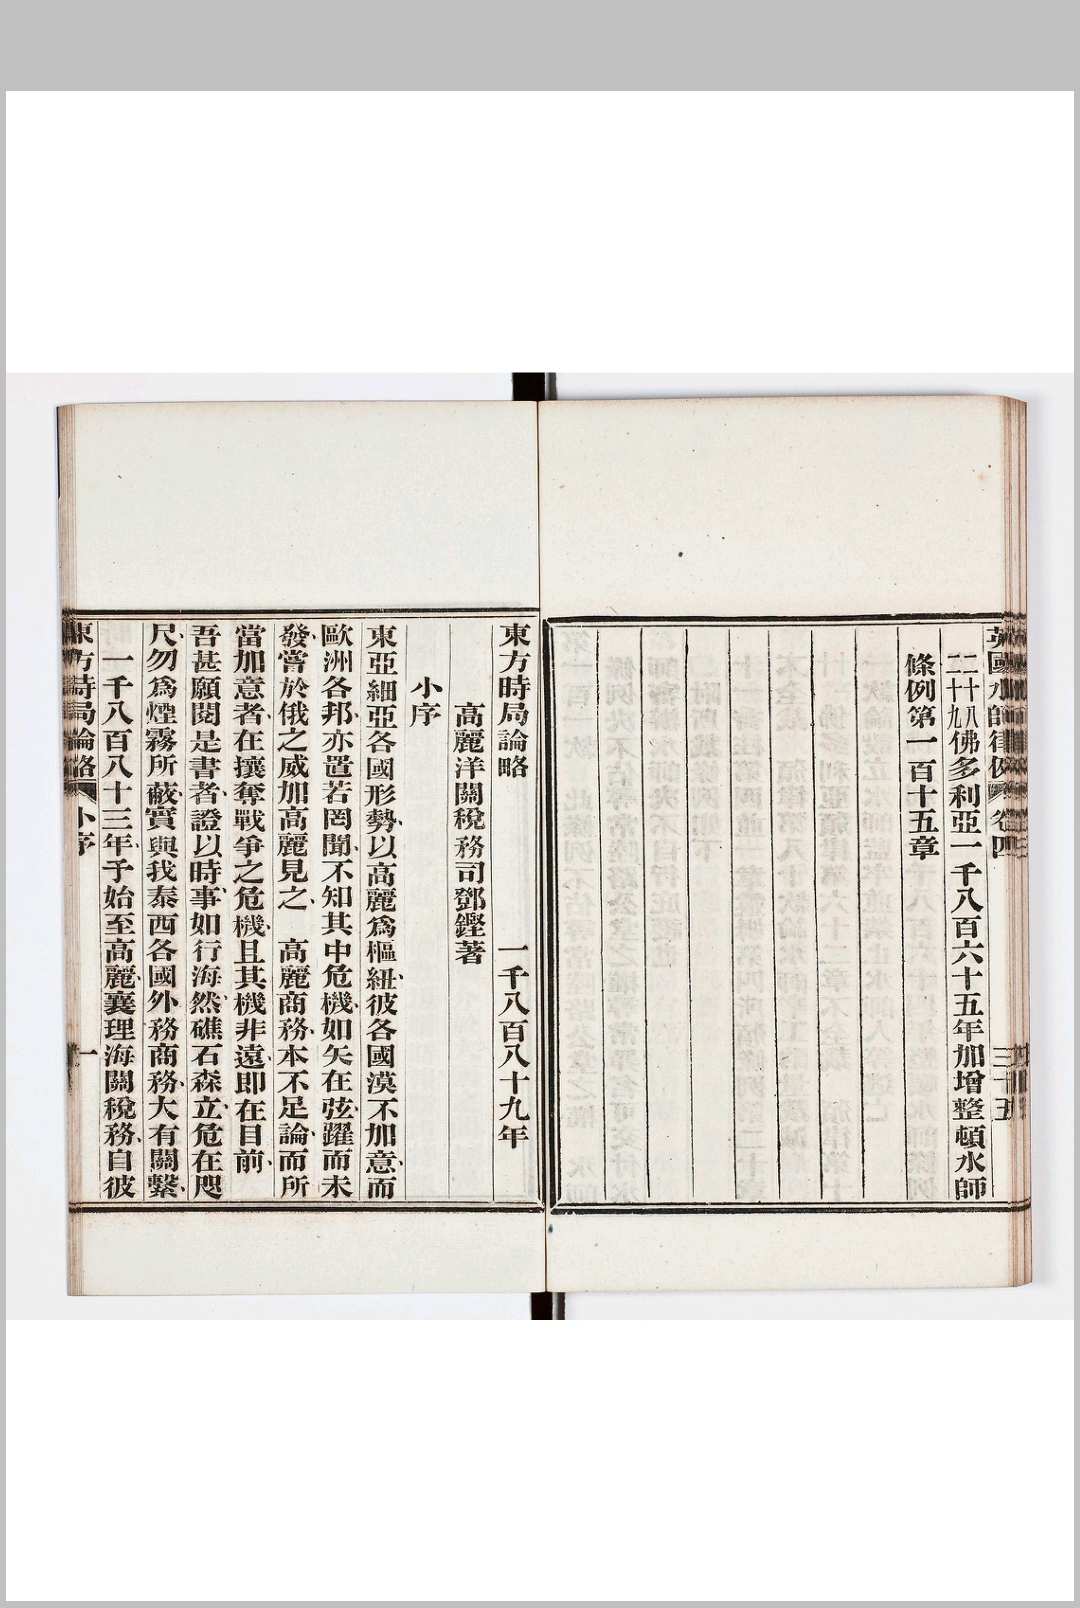 英國水師律例 卷四 三十五
二十八 二十九 佛多利亞一千八百六十五年加增整頓水師
條例第一百十五章
東方時局論略 一千八百八十九年
高麗洋關稅務司鄧鏗著
小序
東亞細亞各國形勢、以高麗爲樞紐、彼各國漠不加意、而
歐洲各邦、亦置若罔聞、不知其中危機、如矢在弦、躍而未
發、嘗於俄之威加高麗見之、高麗商務、本不足論、而所
當加意者、在攘奪戰爭之危機、且其機非遠、即在目前、
吾甚願閱是書者、證以時事、如行海然、礁石森立、危在咫
尺、勿爲煙霧所蔽、實與我泰西各國外務商務、大有關繫、
一千八百八十三年、予始至高麗、襄理海關稅務、自彼
東方時局論略 小序 一